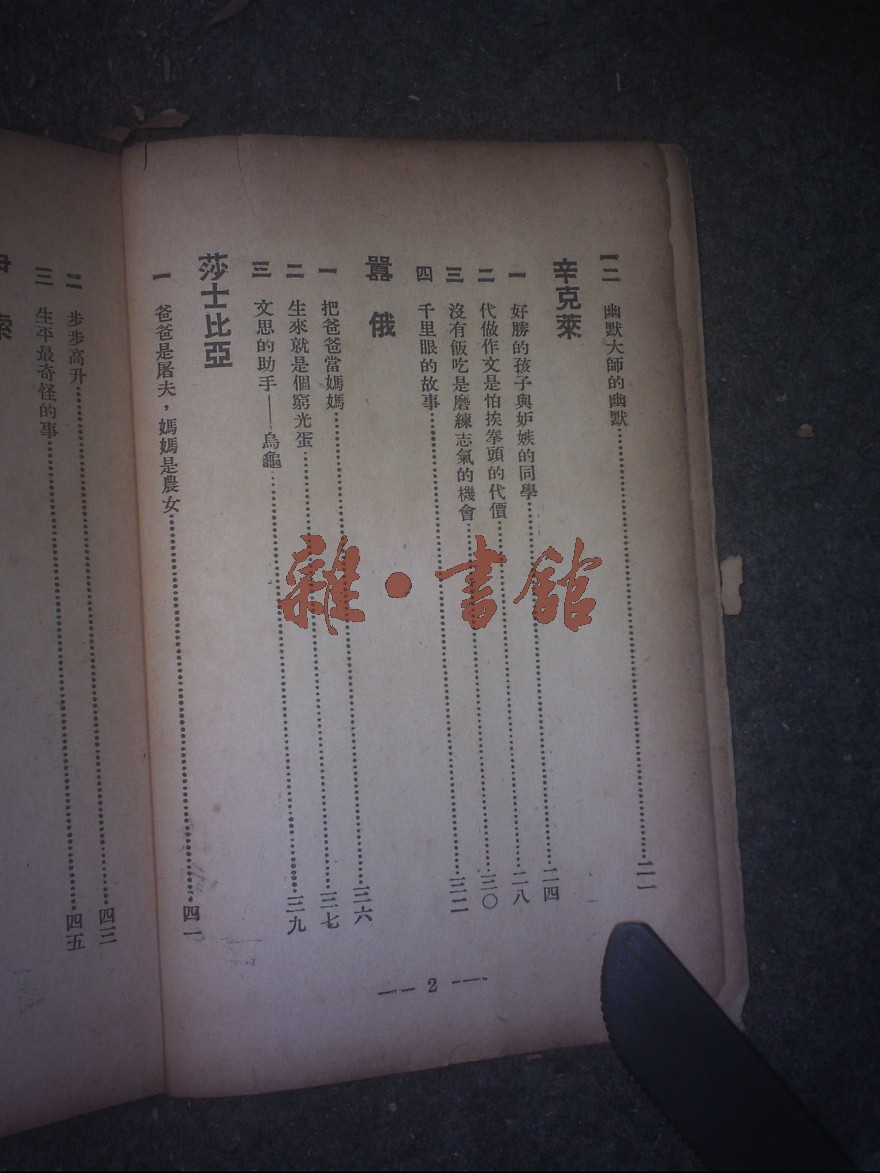 一二 幽默大師的幽默……二一
辛克萊
一 好勝的孩子與妒嫉的同學……二四
二 代做作文是怕挨拳頭的代價……二八
三 沒有飯吃是磨練志氣的機會……三〇
四 千里眼的故事……三二
囂俄
一 把爸爸當媽媽……三六
二 生來就是個窮光蛋……三七
三 文思的助手——烏龜……三九
莎士比亞
一 爸爸是屠夫，媽媽是農女……四一
— 2 —
二 步步高升……四三
三 生平最奇怪的事……四五
雜·書館